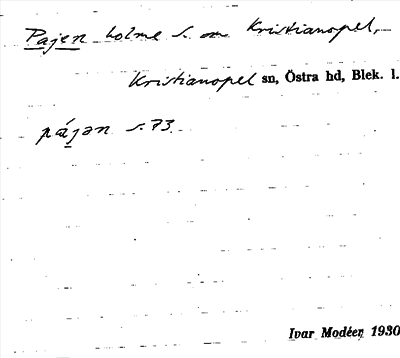 Pajen holme S. om Kristianopel,
Kristianopel sn, Östra hd, Blek. l.
pájan s. 73.
Ivar Modéer 1930